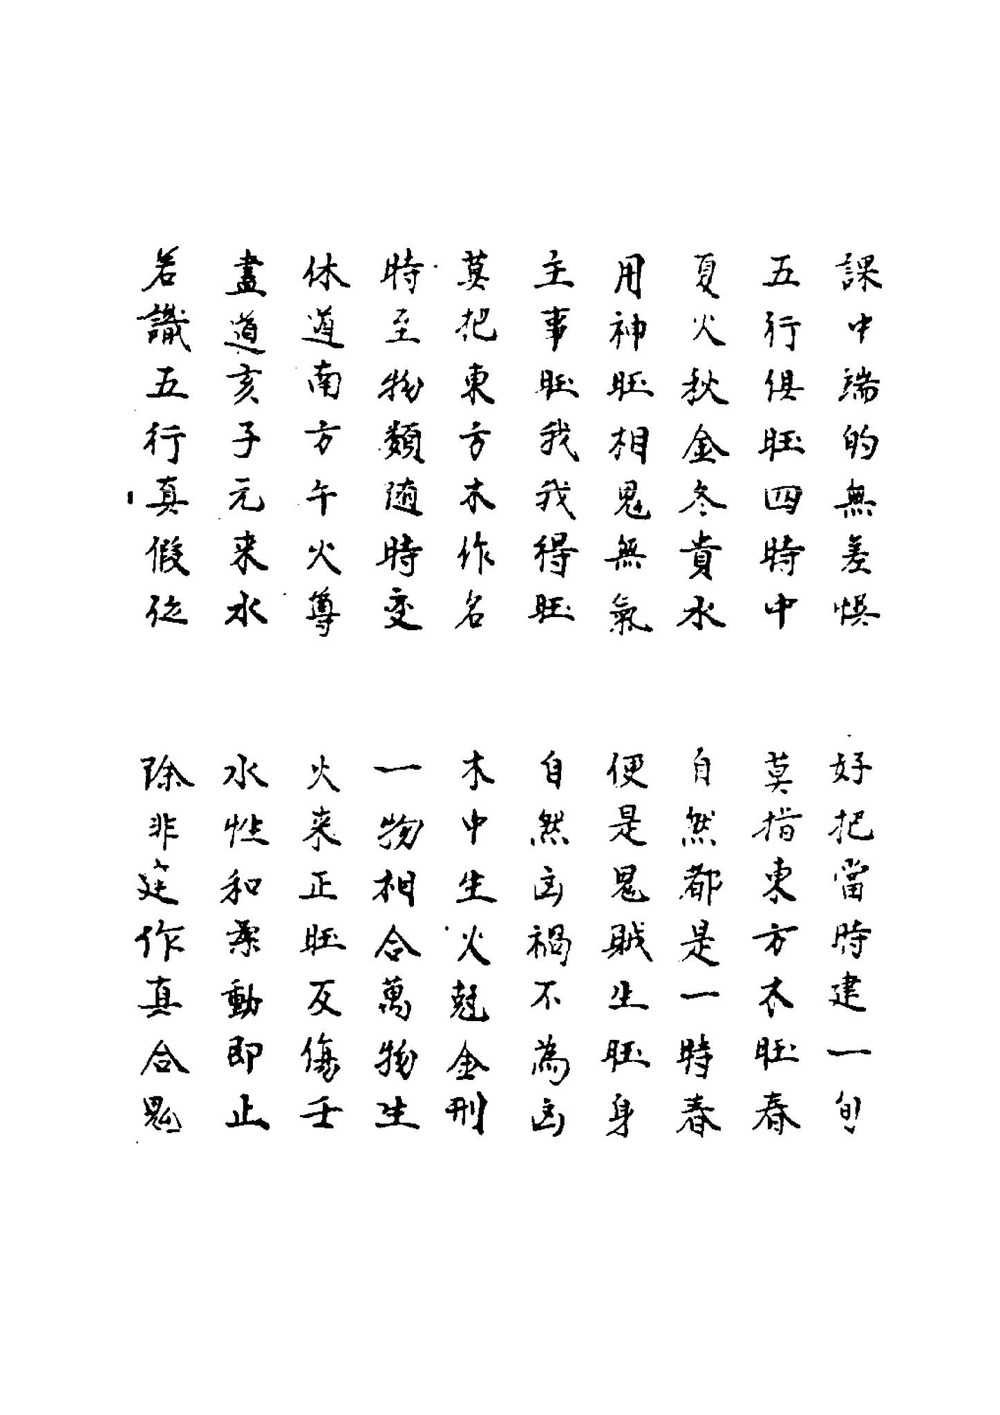 課中端的無差惧　好把當時建一旬
五行俱旺四時中　莫指東方木旺春
夏火秋金冬貴水　自然都是一時春
用神旺相鬼無氣　便是鬼賊生旺身
主事旺我我得旺　自然凶禍不為凶
莫把東方木作名　木中生火尅金刑
時至物類随時变　一物相合萬物生
休道南方午火尊　火来正旺反傷壬
盡道亥子元来水　水性和柔動即止
若識五行真假位　除非建作真合鬼